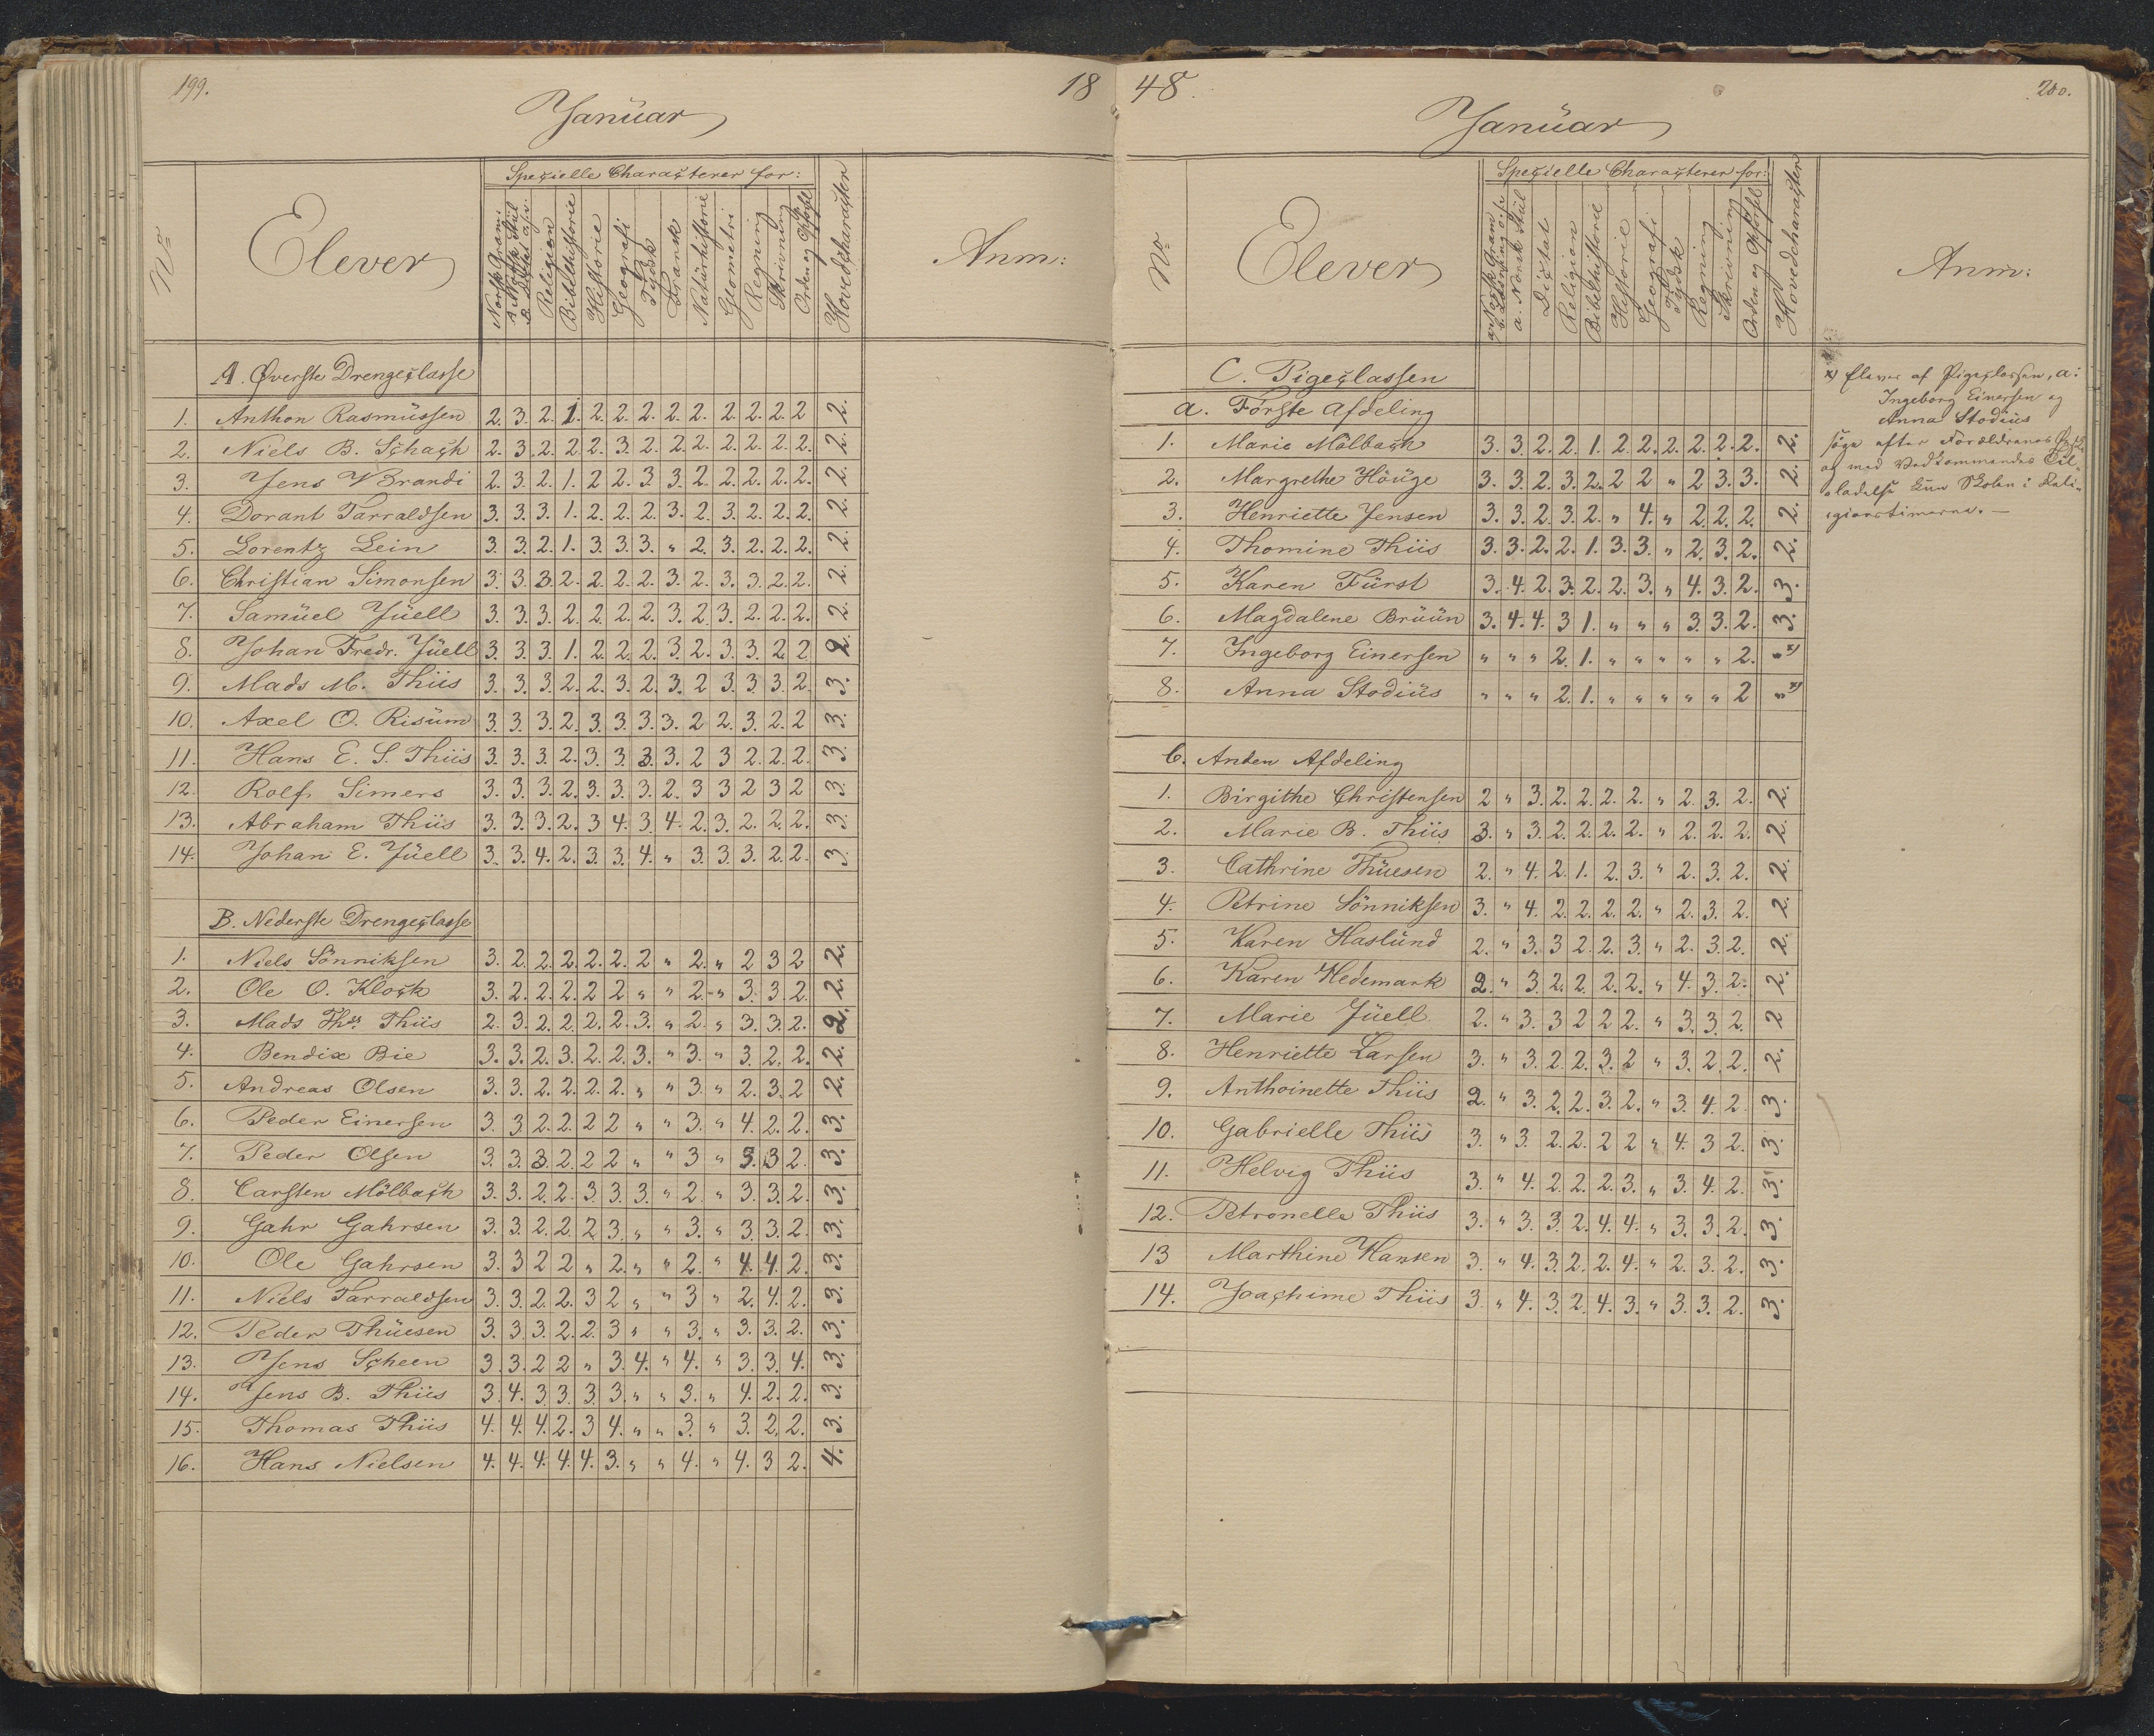 199.
18
Januar
No
Elever
Specielle Characterer for:
Religion
Bibelhistorie
Historie
Geografi
Tydsk
Fransk
Naturhistorie
Geometri
Regning
Skrivning
Orden og Opførsel
Hovedcharacter
Anm:
A. Øverste Drengeclasse
1. Anthon Rasmussen 2. 3. 2. 1. 2. 2. 2. 2. 2. 2. 2. 2. 2 2.
2. Niels B. Schach 2. 3. 2. 2. 2. 3. 2. 2. 2. 2. 2. 2. 2. 2.
3. Jens W Brandi 2. 3. 2. 1. 2 2. 3 3. 2. 2. 2. 2. 2. 2.
4. Dorant Tarraldsen 3. 3. 3. 1. 2. 2. 2. 3. 2. 3. 2. 2. 2. 2.
5. Lorentz Lein 3. 3. 2. 1. 3. 3. 3. " 2. 3. 2. 2. 2. 2.
6. Christian Simonsen 3. 3. 3. 2. 2. 2. 2. 3. 2. 3. 3. 2. 2. 2.
7. Samuel Juell 3. 3. 3. 2. 2. 2. 2. 3. 2. 3. 2. 2. 2. 2.
8. Johan Fredr. Juell 3. 3. 3. 1. 2. 2. 2. 3. 2. 3. 3. 2. 2 2.
9. Mads M. Thiis 3. 3. 3. 2. 2. 3. 2. 3. 2 3. 3. 3. 2. 3.
10. Axel O. Risum 3. 3. 3. 2. 3. 3. 3. 3. 2 2. 3. 2. 2 3.
11. Hans E. S. Thiis 3. 3. 3. 2. 3. 3. 3. 3. 2 3 2. 2. 2. 3.
12. Rolf Simers 3. 3. 3. 2. 3. 3. 3. 2. 3 3 2 3 2 3.
13. Abraham Thiis 3. 3. 3. 2. 3 4. 3. 4. 2. 3. 2. 2. 2. 3.
14. Johan E. Juell 3. 3. 4. 2. 3. 3. 4. " 3. 3. 3. 2. 2. 3.
B. Nederste Drengeclasse
1. Niels Sönniksen 3. 2. 2. 2. 2. 2. 2 " 2. " 2 3 2 2.
2. Ole O. Klock 3. 2. 2. 2. 2 2 " " 2. " 3. 3. 2. 2.
3. Mads Ths. Thiis 2. 3. 2. 2. 2. 2. 3. " 2. " 3. 3. 2. 2.
4. Bendix Bie 3. 3. 2. 3. 2. 2. 3. " 3. " 3. 2. 2. 2.
5. Andreas Olsen 3. 3. 2. 2. 2. 2. " " 3. " 2. 3. 2 2.
6. Peder Einersen 3. 3. 2. 2. 2 2 " " 3. " 4. 2. 2. 3.
7. Peder Olsen 3. 3. 3. 2. 2 2 " " 3 " 3. 3 2. 3.
8. Carsten Mölbach 3. 3. 2. 2. 3. 3. 3. " 2. " 3. 3. 2. 3.
9. Gahr Gahrsen 3. 3. 2. 2. 2 3. " " 3. " 3. 3. 2. 3.
10. Ole Gahrsen 3. 3 2 2 " 2. " " 2. " 4. 4. 2. 3.
11. Niels Tarraldsen 3. 3. 2. 2. 3 2 " " 3 " 2. 4. 2. 3.
12. Peder Thuesen 3. 3. 3. 2. 2. 3 " " 3. " 3. 3. 2. 3.
13. Jens Scheen 3. 3. 2 2 " 3. 4. " 4. " 3. 3. 4. 3.
14. Jens B. Thiis 3. 4. 3. 3. 3. 3. " " 3. " 4. 2. 2. 3.
15. Thomas Thiis 4. 4. 4. 2. 3 4. " " 3. " 3. 2. 2. 3.
16. Hans Nielsen 4. 4. 4. 4. 4. 3. " " 4. " 4. 3 2. 4.
48.
200.
Januar
No
Elever
Specielle Characterer for:
a. Norsk Stiil
Dictat
Religion
Bibelhistorie
Historie
Geografi
Tydsk
Regning
Skrivning
Orden og Opførsel
Hovedcharacter
Anm:
C. Pigeclassen
a. Förste Afdeling
1. Marie Mölbach 3. 3. 2. 2. 1. 2. 2. 2. 2. 2. 2. 2.
2. Margrethe Höuge 3. 3. 2. 3. 2. 2 2 " 2 3. 3. 2.
3. Henriette Jensen 3. 3. 2. 3. 2. " 4. " 2. 2. 2. 2.
4. Thomine Thiis 3. 3. 2. 2. 1. 3. 3. " 2. 3. 2. 2.
5. Karen Fürst 3. 4. 2. 3. 2. 2. 3. " 4. 3. 2. 3.
6. Magdalene Bruün 3. 4. 4. 3 1. " " " 3. 3. 2. 3.
7. Ingeborg Einersen " " " 2. 1. " " " " " 2. " x)
8. Anna Stodius " " " 2. 1. " " " " " 2 " x)
b. Anden Afdeling
1. Birgithe Christensen 2 " 3. 2. 2. 2. 2. " 2. 3. 2. 2.
2. Marie B. Thiis 3. " 3. 2. 2. 2. 2. " 2. 2. 2. 2.
3. Cathrine Thuesen 2. " 4. 2. 1. 2. 3. " 2. 3. 2. 2.
4. Petrine Sönniksen 3. " 4. 2. 2. 2. 2. " 2. 3. 2. 2.
5. Karen Haslund 2. " 3. 3 2. 2. 3. " 2. 3. 2. 2.
6. Karen Hedemark 2. " 3. 2. 2. 2. 2. " 4. 3. 2. 2.
7. Marie Juell 2. " 3. 3 2 2 2. " 3. 3. 2. 2
8. Henriette Larsen 3. " 3. 2. 2. 3. 2 " 3. 2. 2. 2.
9. Anthoinette Thiis 2. " 3. 2. 2. 3. 2. " 3. 4. 2 3.
10. Gabrielle Thiis 3. " 3. 2. 2. 2 2 " 4. 3 2. 3.
11. Helvig Thiis 3. " 4. 2. 2. 2. 3. " 3. 4. 2. 3.
12. Petronelle Thiis 3. " 3. 3. 2. 4. 4. " 3. 3. 2. 3.
13 Marthine Hansen 3. " 4. 3. 2. 2. 4. " 2. 3. 2. 3.
14. Joachime Thiis 3. " 4. 3. 2. 4. 3. " 3. 3. 2. 3.
x) Elever af Pigeclassen, a:
Ingeborg Einersen og
Anna Stodius
søge efter Forældrenes
og med Vedkommendes Til-
ladelse kun Skolen i Reli-
gionstimerne. —